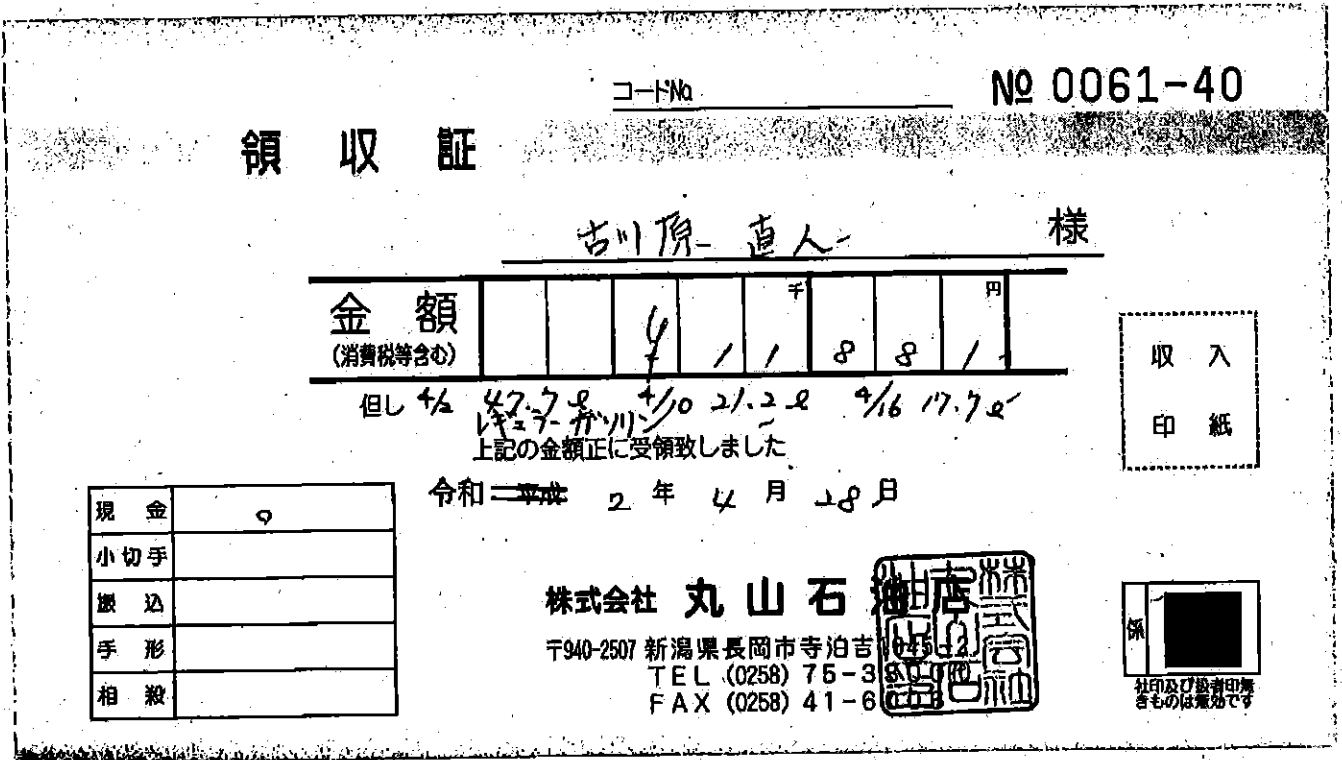 コードNo.
№ 0061-40
領収証
古川原 直人 様
金額 ¥ 1 1 千 8 8 1 円
(消費税等含む)
但し 4/2 47.7ℓ 4/10 21.2ℓ 4/16 17.7ℓ
レギュラーガソリン
上記の金額正に受領致しました
令和 2年 4月 28日
収入
印紙
現金
小切手
振込
手形
相殺
株式会社 丸山石油店
〒940-2507 新潟県長岡市寺泊吉
TEL (0258) 75-3
FAX (0258) 41-6
係
社印及び扱者印無
きものは無効です